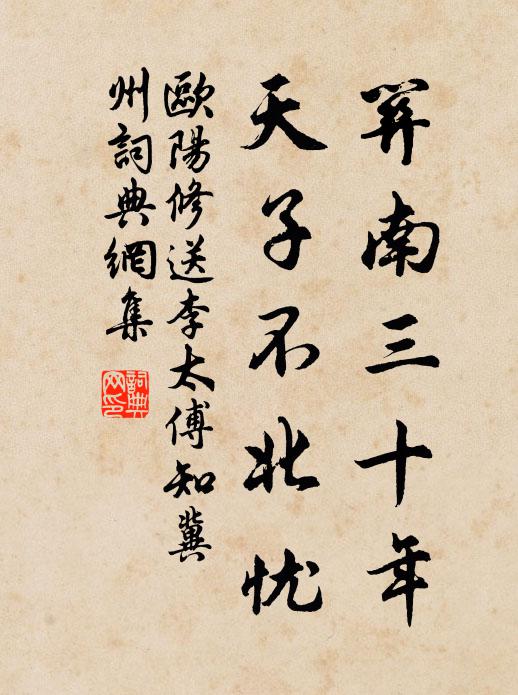 關南三十年
天子不北忧
歐陽修送李太傅知冀
州詞典網集
詞典
网印